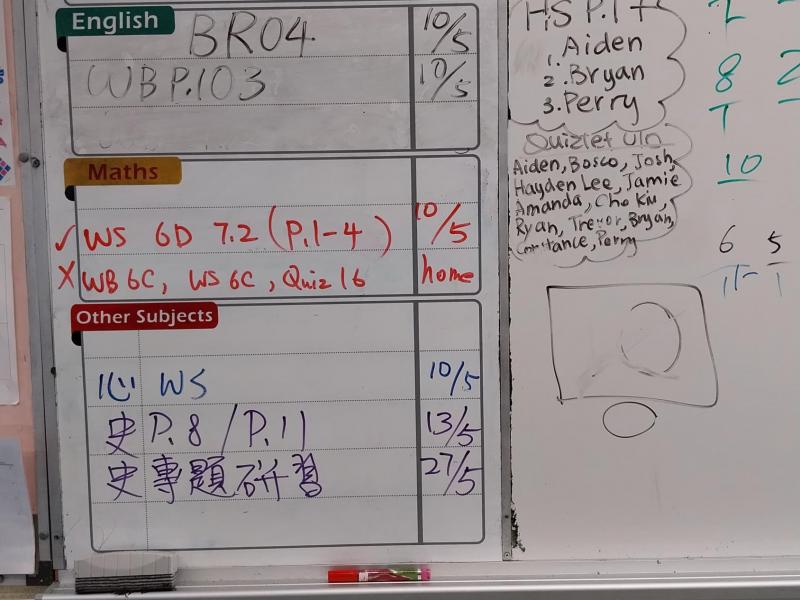 English
BR04 10/5
WB P.103 10/5
Maths
✓ WS 6D 7.2 (P.1-4) 10/5
X WB 6C, WS 6C, Quiz 16 home
Other Subjects
心 WS 10/5
史 P.8 / P.11 13/5
史 專題研習 27/5
HS P.17
1. Aiden
2. Bryan
3. Perry
Quizlet U10
Aiden, Bosco, Josh,
Hayden Lee, Jamie
Amanda, Cho Kiu,
Ryan, Trevor, Bryan,
Perry
8
10
6 5